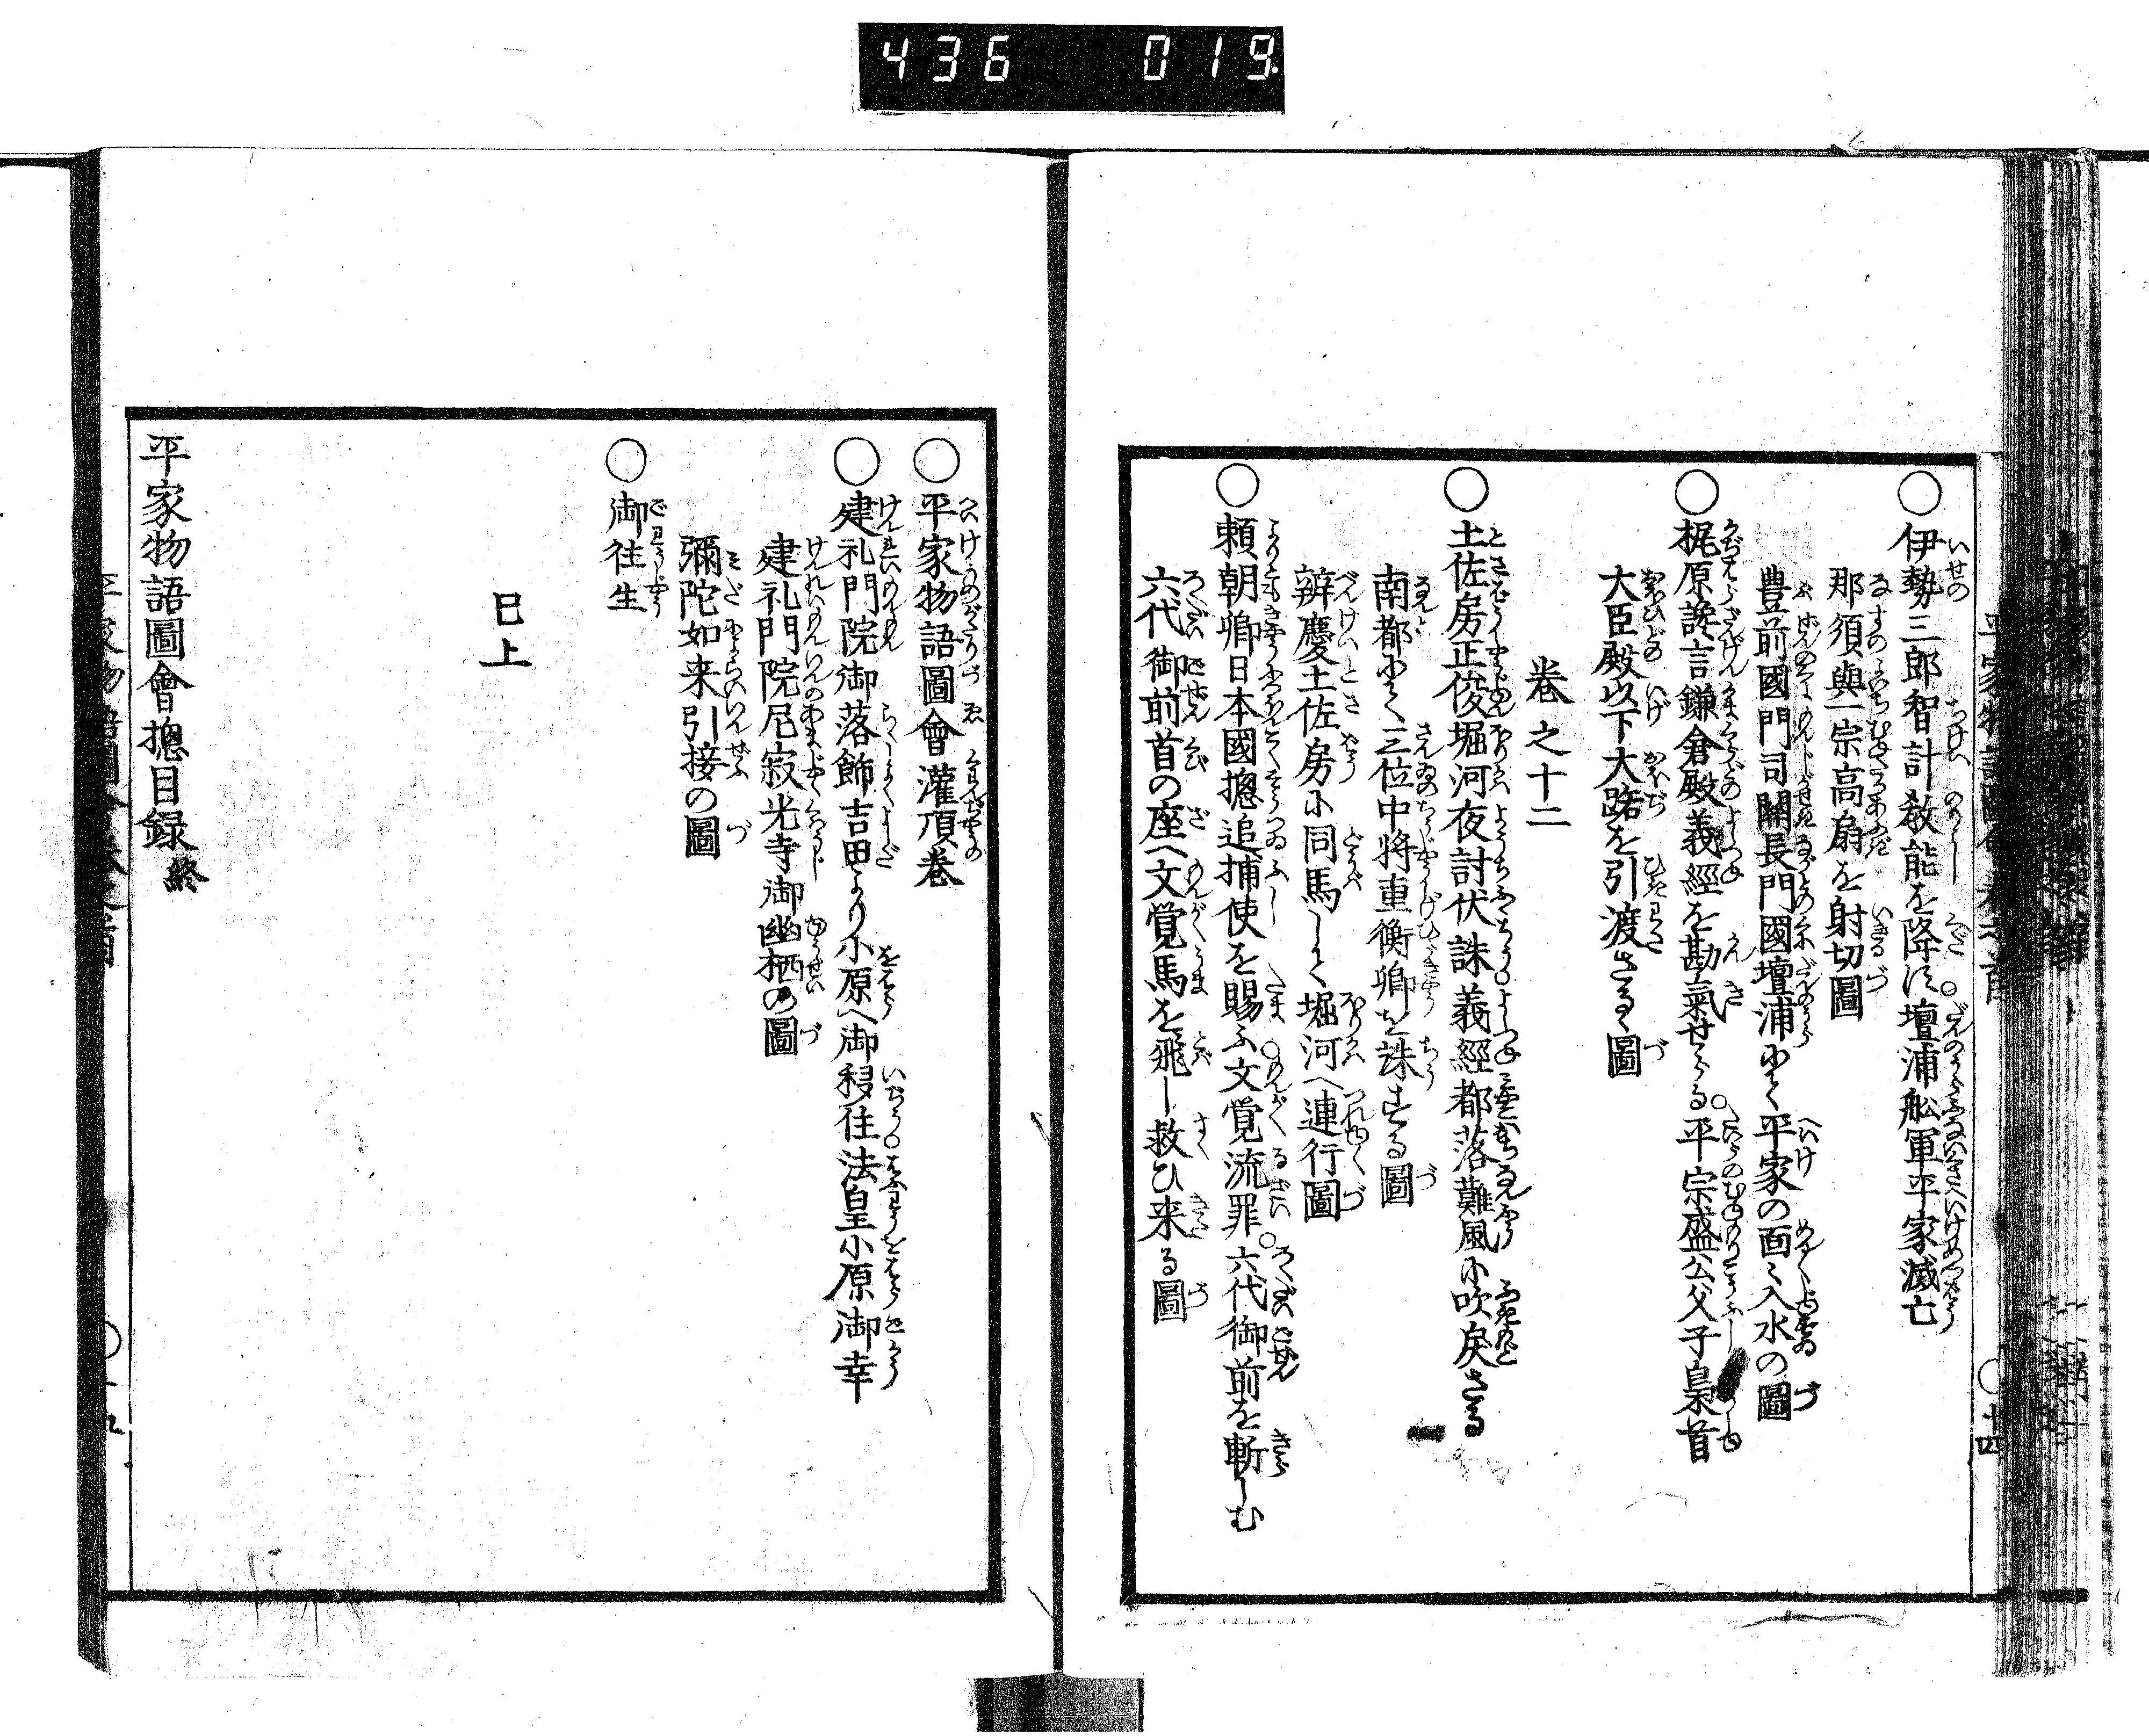 436 019
○伊勢三郎智計教能を降す○壇浦舩軍平家滅亡
那須與一宗高扇を射切圖
豊前國門司關長門國壇浦にて平家の面〻入水の圖
○梶原讒言鎌倉殿義經を勘氣せらる○平宗盛公父子梟首
大臣殿以下大路を引渡さるゝ圖
巻之十二
○土佐房正俊堀河夜討伏誅○義經都落難風に吹戻さる
南都にて三位中将重衡卿を誅する圖
辨慶土佐房に同馬して堀河へ連行圖
○頼朝卿日本國摠追捕使を賜ふ○文覚流罪○六代御前を斬しむ
六代御前首の座へ文覚馬を飛し救ひ来る圖
十四
○平家物語圖會灌頂巻
○建礼門院御落飾吉田より小原へ御移住○法皇小原御幸
建礼門院尼寂光寺御幽栖の圖
彌陀如来引接の圖
○御往生
已上
平家物語圖會摠目録終